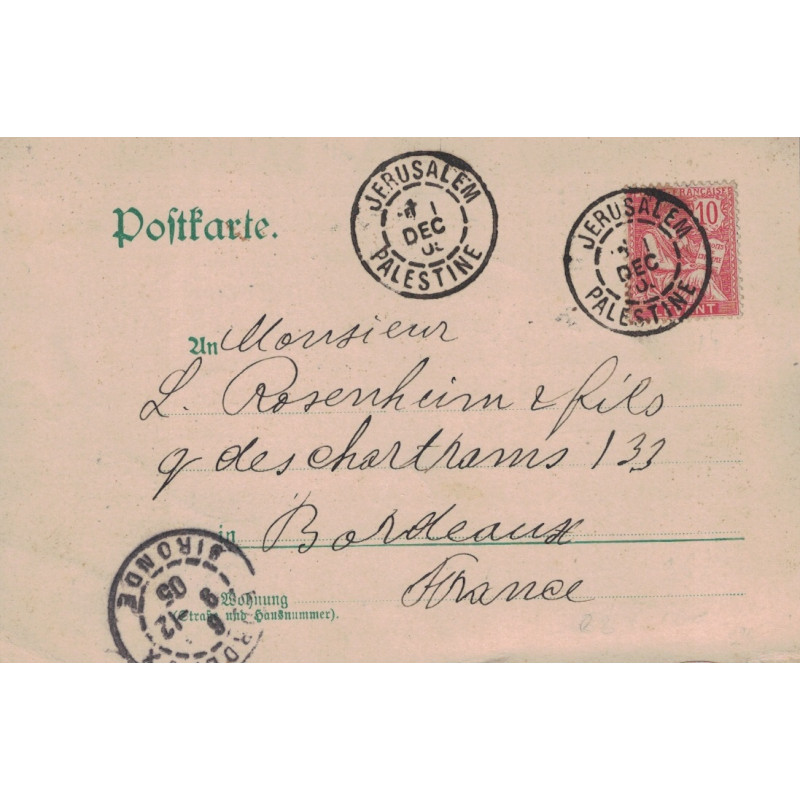 JERUSALEM
1
DEC
PALESTINE
JERUSALEM
DEC
PALESTINE
FRANÇAISE
10
Postkarte.
An Monsieur
L. Rosenheim & fils
q des chartrams 133
in Bordeaux
France
Wohnung
(Straße und Hausnummer).
GIRONDE
9
12
05